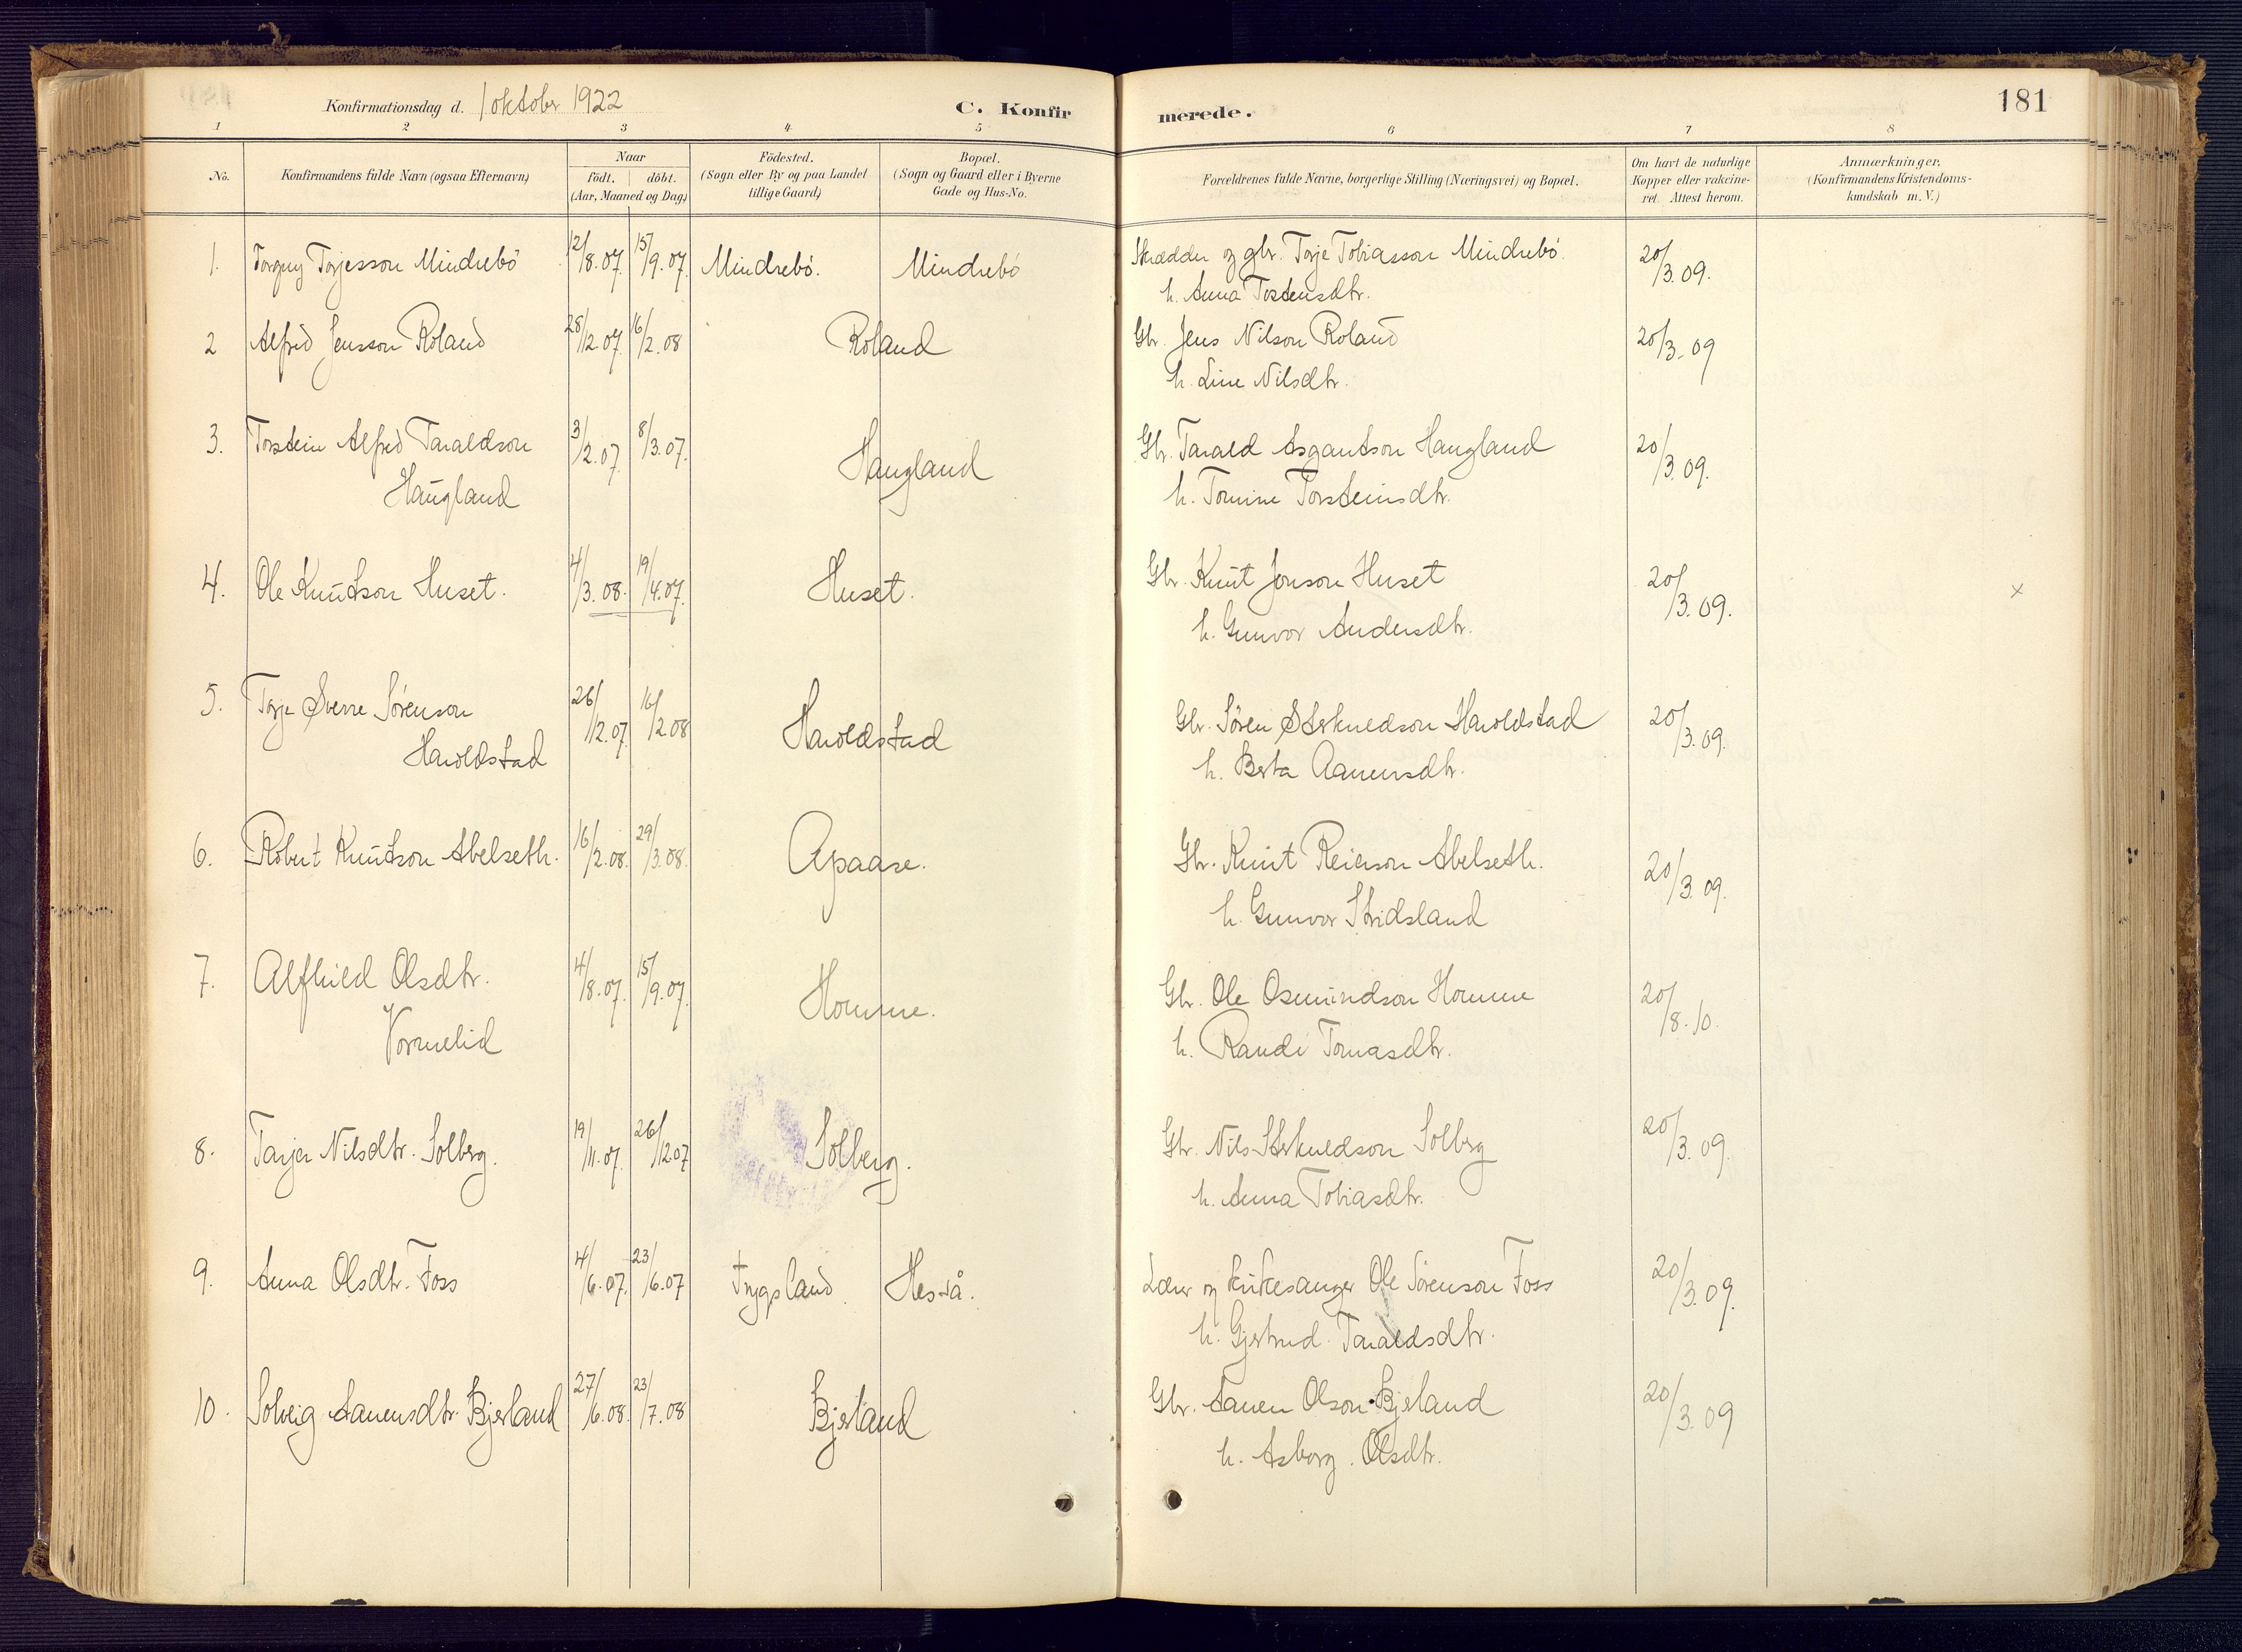 181
Konfirmationsdag d. 1 oktober 1922
C. Konfirmerede.
1 2 3 4 5 6 7 8
No.
Konfirmandens fulde Navn (ogsaa Efternavn)
Naar
födt. döbt.
(Aar, Maaned og Dag)
Födested.
(Sogn eller By og paa Landet
tillige Gaard)
Bopæl.
(Sogn og Gaard eller i Byerne
Gade og Hus-No.
Forældrenes fulde Navne, borgerlige Stilling (Næringsvei) og Bopæl.
Om havt de naturlige
Kopper eller vakcine-
ret. Attest herom.
Anmærkninger.
(Konfirmandens Kristendoms-
kundskab m. V.)
1. Torguy Torjesson Mindrebö 12/8.07. 15/9.07. Mindrebö. Mindrebö Skrædder og gbr. Torje Tobiasson Mindrebö. 20/3.09.
h. Anna Tostensdtr.
2 Alfred Jensson Roland 28/12.07. 16/2.08 Roland Gbr. Jens Nilson Roland 20/3.09
h. Line Nilsdtr.
3. Torstein Alfred Taraldson 3/2.07. 8/3.07. Haugland Gbr. Tarald Asgautson Haugland 20/3.09.
Haugland h. Tomine Torsteinsdtr.
4. Ole Knutson Huset. 4/3.08. 19/4.07. Huset. Gbr. Knut Jonson Huset 20/3.09. x
h. Gunvor Andersdtr.
5. Torje Sverre Sörenson 26/12.07. 16/2.08 Haroldstad Gbr. Sören Sterkuldson Haroldstad 20/3.09.
Haroldstad h. Berta Aanensdtr.
6. Robert Knutson Abelseth. 16/2.08. 29/3.08. Apaase. Gbr. Knut Reierson Abelseth. 20/3.09.
h. Gunvor Stridsland
7. Alfhild Olsdtr. 4/8.07. 15/9.07. Homme. Gbr. Ole Osmundson Homme 20/8.10.
Vormelid h. Randi Tomasdtr.
8. Tarjer Nilsdtr. Solberg. 19/11.07. 26/12.07 Solberg. Gbr. Nils Sterkuldson Solberg 20/3.09.
h. Anna Tobiasdtr.
9. Anna Olsdtr. Foss 4/6.07. 23/6.07 Trygsland.Heså. Lærer og kirkesanger Ole Sörenson Foss 20/3.09.
h. Gjertrud Taraldsdtr.
10. Solveig Aanensdtr. Bjerland 27/6.08. 23/7.08 Bjerland Gbr. Aanen Olson Bjerland 20/3.09
h. Asborg Olsdtr.